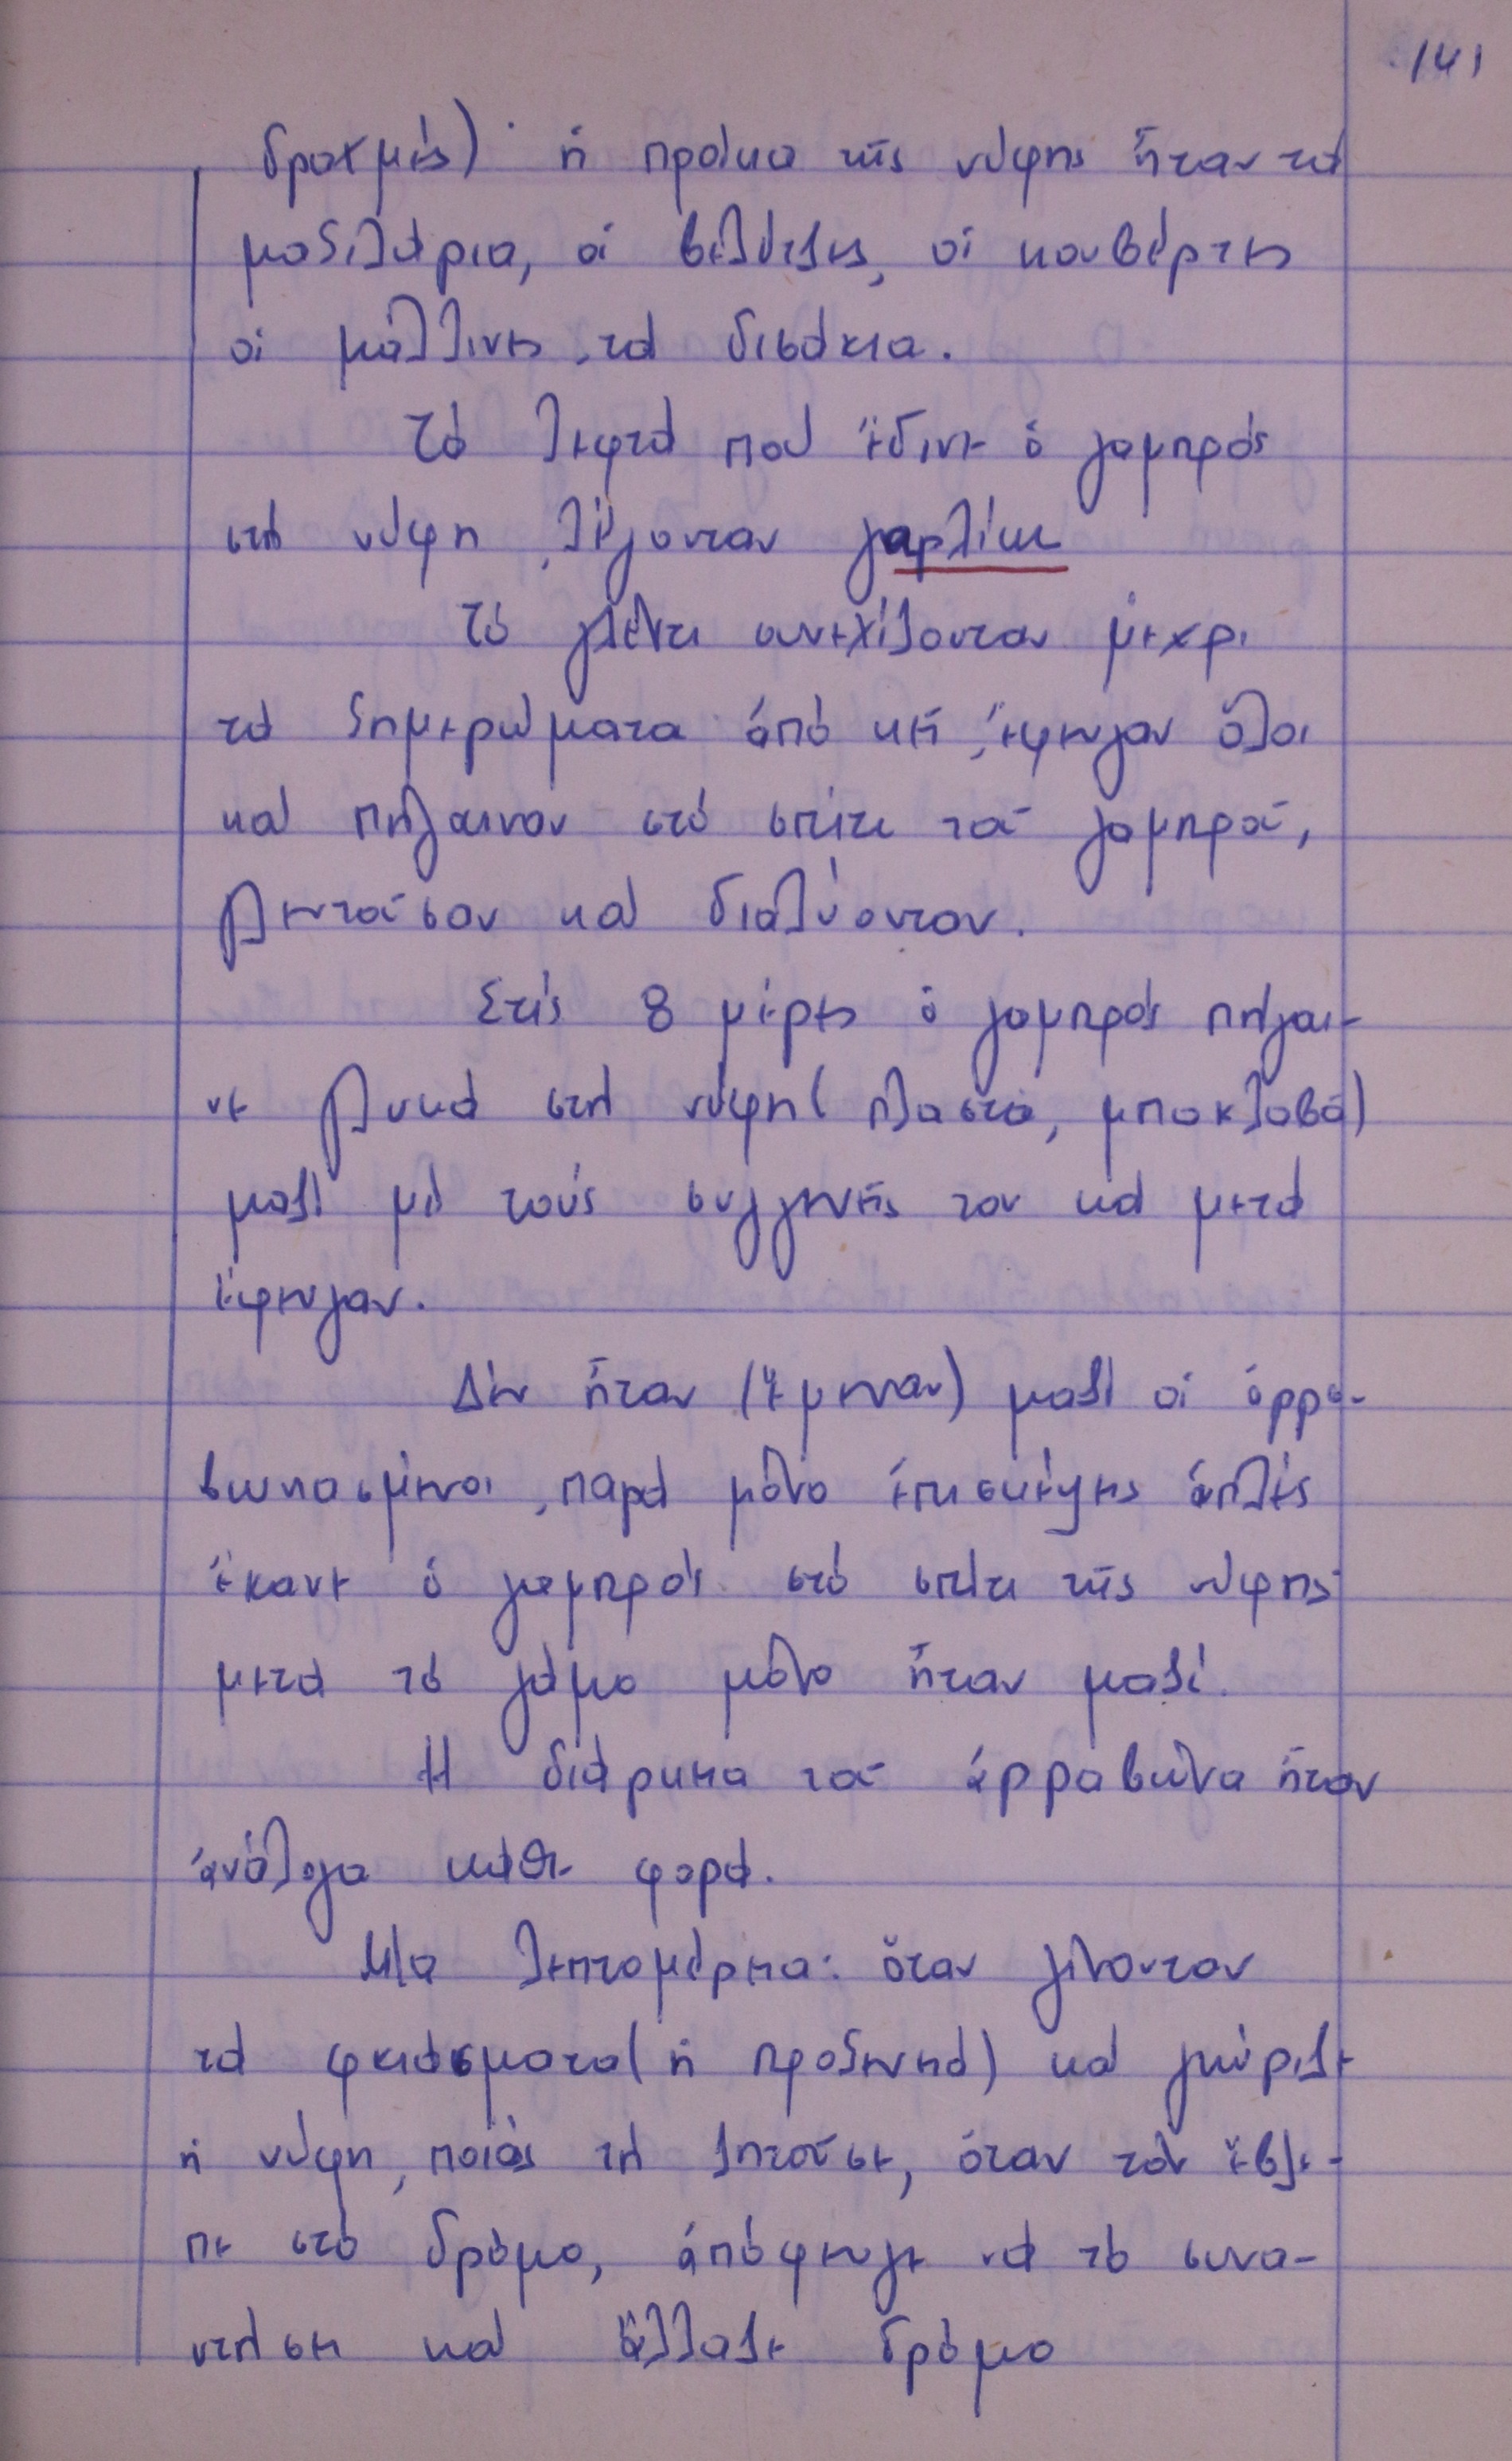 141
δραχμές)· ἡ προίκα τῆς νύφης ἦταν τά
μαξιλάρια, οἱ βελέτζες, οἱ κουβέρτες
οἱ μάλλινες, τά δισάκια.
Τά λεφτά πού ἔδινε ὁ γαμπρός
στή νύφη, λέγονταν γαρλίκι
Τό γλέντι συνεχίζονταν μέχρι
τά ξημερώματα· ἀπό κεῖ, ἔφευγαν ὅλοι
καί πήγαιναν στό σπίτι τοῦ γαμπροῦ,
γλεντοῦσαν καί διαλύονταν.
Στίς 8 μέρες ὁ γαμπρός πήγαι-
νε γλυκά στή νύφη (πάστα, μπακλαβά)
μαζί μέ τούς συγγενεῖς του καί μετά
ἔφευγαν.
Δέν ἦταν (ἔμεναν) μαζί οἱ ἀρρα-
βωνιασμένοι, παρά μόνο ἐπισκέψεις ἁπλές
ἔκανε ὁ γαμπρός στό σπίτι τῆς νύφης·
μετά τό γάμο μόνο ἦταν μαζί.
Η διάρκεια τοῦ ἀρραβώνα ἦταν
ἀνάλογα κάθε φορά.
Μία λεπτομέρεια: ὅταν γίνονταν
τά φκιάσματα (ἡ προξενειά) καί γνώριζε
ἡ νύφη, ποιός τή ζητοῦσε, ὅταν τόν ἔβλε-
πε στό δρόμο, ἀπόφευγε νά τό συνα-
ντήσει καί ἄλλαζε δρόμο